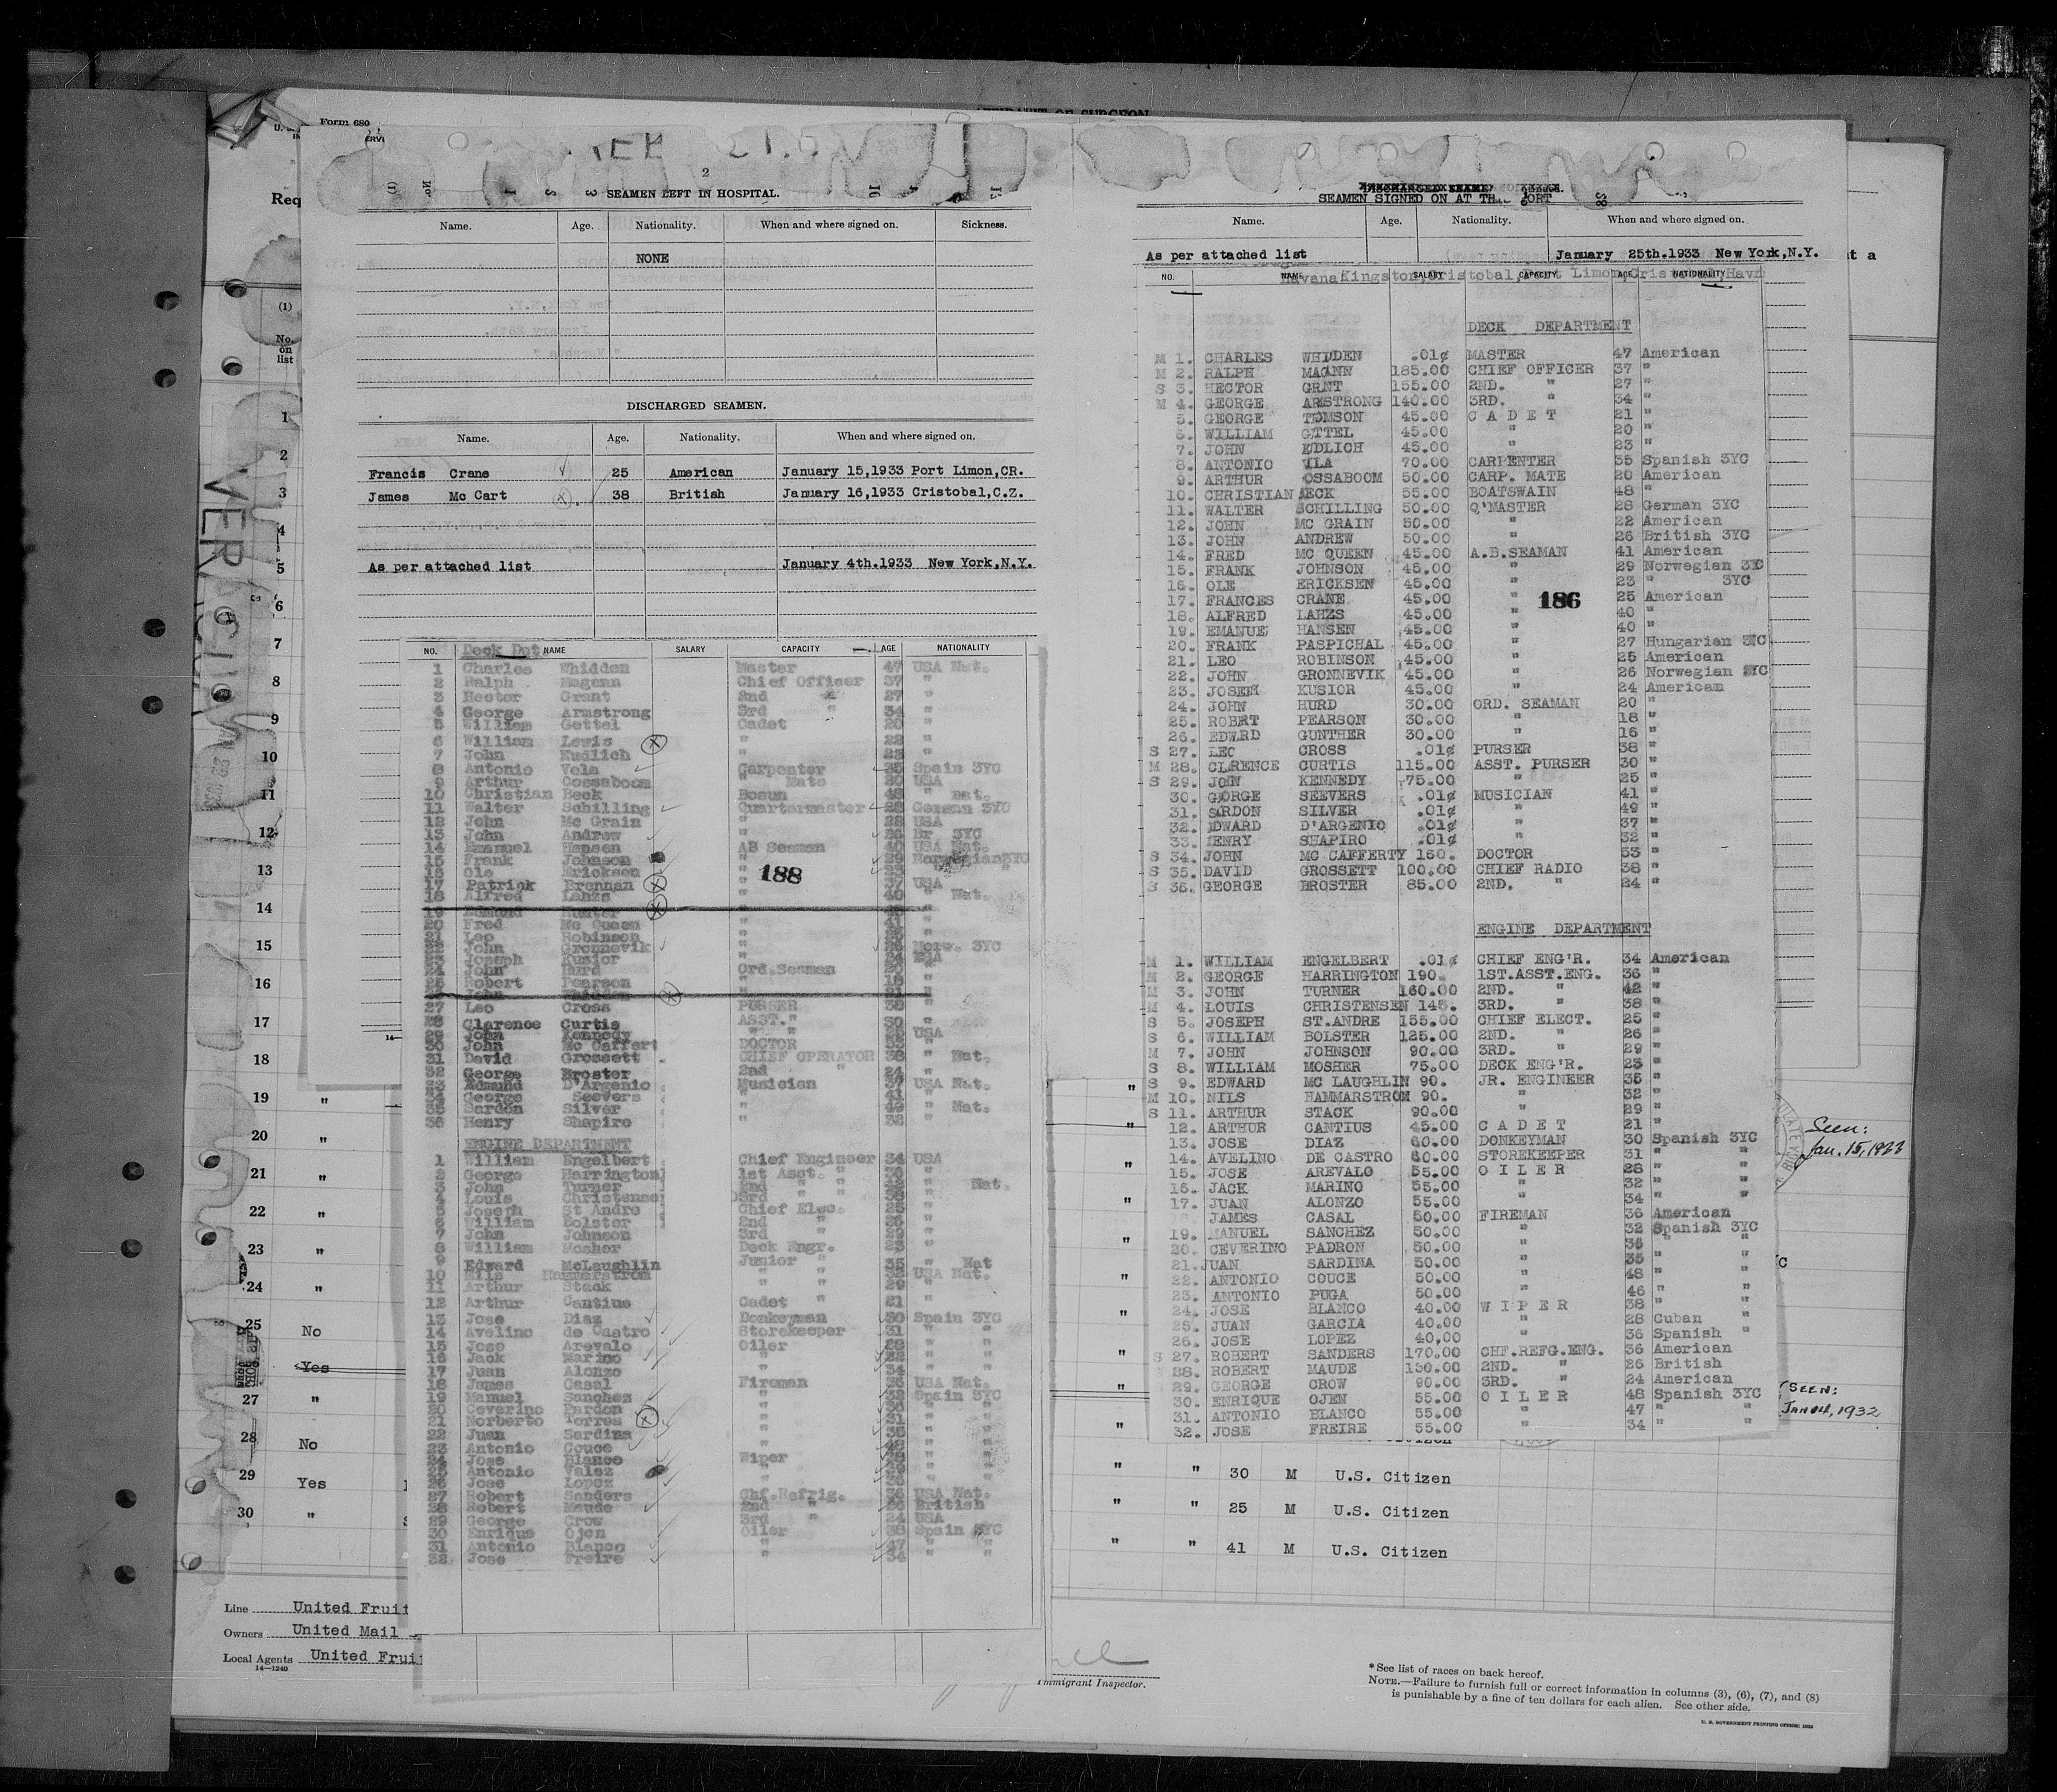 Form 680
2
SEAMEN LEFT IN HOSPITAL.
Name. Age. Nationality. When and where signed on. Sickness.
NONE
DISCHARGED SEAMEN.
Name. Age. Nationality. When and where signed on.
Francis Crane 25 American January 15,1933 Port Limon,CR.
James Mc Cart 38 British January 16,1933 Cristobal,C.Z.
As per attached list January 4th.1933 New York,N.Y.
NO. Deck Dpt NAME SALARY CAPACITY AGE NATIONALITY
1 Charles Whidden Master 47 USA Nat.
2 Ralph Magann Chief Officer 37 "
3 Hector Grant 2nd " 27 "
4 George Armstrong 3rd " 34 "
5 William Gettel Cadet 20 "
6 William Lewis " 22 "
7 John Eudlich " 23 "
8 Antonio Vela Carpenter 35 Spain 3YC
9 Arthur Cossaboom " Mate 20 USA
10 Christian Beck Bosun 48 " Nat.
11 Walter Schilling Quartermaster 28 German 3YC
12 John Mc Grain " 22 USA
13 John Andrew " 26 Br 3YC
14 Emanuel Hansen AB Seaman 40 USA Nat.
15 Frank Johnson " 29 Norwegian3YC
16 Ole Erickson " 23 "
17 Patrick Brennan " 37 USA
18 Alfred Lahzs " 40 " Nat.
188
19 Edmund Hunter "
20 Fred Mc Queen " 41 "
21 Leo Robinson " 25 "
22 John Gronnevik " 26 Norw. 3YC
23 Joseph Kusior " 24 USA
24 John Hurd Ord.Seaman 20 "
25 Robert Pearson " 18 "
John " 21 "
27 Leo Cross PURSER 38 "
28 Clarence Curtis ASST. " 30 "
29 John Kennedy " " 25 USA
30 John Mc Caffert DOCTOR 53 "
31 David Grossett CHIEF OPERATOR 38 " Nat.
32 George Broster 2nd " 24 "
33 Edmund D'Argenio Musician 37 USA Nat.
34 George Seevers " 41 "
35 Sardon Silver " 49 " Nat.
36 Henry Shapiro " 32 "
ENGINE DEPARTMENT
1 William Engelbert Chief Engineer 34 USA
2 George Harrington 1st Asst. " 36 "
3 John Turner 2nd " " 42 " Nat.
4 Louis Christense 3rd " " 38 "
5 Joseph St Andre Chief Elec. 25 "
6 William Bolster 2nd " 26 "
7 John Johnson 3rd " 29 "
8 William Mosher Deck Engr. 23 "
9 Edward McLaughlin Junior " 35 " Nat
10 Nils Hammerstrom " " 32 USA Nat.
11 Arthur Stack " " 29 "
12 Arthur Cantius Cadet " 21 "
13 Jose Diaz Donkeyman 30 Spain 3YC
14 Avelino de Castro Storekeeper 31 " "
15 Jose Arevalo Oiler 28 " "
16 Jack Marino " 32 " "
17 Juan Alonzo " 34 " "
18 James Casal Fireman 36 USA Nat.
19 Manuel Sanchez " 32 Spain 3YC
20 Ceverino Pardon " 36 " "
21 Norberto Torres " 31 " "
22 Juan Sardina " 35 " "
23 Antonio Couce " 48 " "
24 Jose Blanco Wiper 38 " "
25 Antonio Valez " " "
26 Jose Lopez " 36 " "
27 Robert Sanders Chf.Refrig. 36 USA Nat.
28 Robert Maude 2nd " 26 British
29 George Crow 3rd " 24 USA
30 Enrique Ojen Oiler 38 Spain 3YC
31 Antonio Blanco " 47 " "
32 Jose Freire " 34 " "
SEAMEN SIGNED ON AT THIS PORT
Name. Age. Nationality. When and where signed on.
As per attached list January 25th.1933 New York,N.Y.
NO. NAME SALARY CAPACITY AGE NATIONALITY
Havana Kingston,Cristobal,Port Limon,Cristobal Hav
DECK DEPARTMENT
M 1. CHARLES WHDDEN .01¢ MASTER 47 American
M 2. RALPH MAGANN 185.00 CHIEF OFFICER 37 "
S 3. HECTOR GRNT 155.00 2ND. " 27 "
M 4. GEORGE ARSTRONG 140.00 3RD. " 34 "
5. GEORGE TOMSON 45.00 C A D E T 21 "
6. WILLIAM GTTEL 45.00 " 20 "
7. JOHN EDLICH 45.00 " 23 "
8. ANTONIO VLA 70.00 CARPENTER 35 Spanish 3YC
9. ARTHUR OSSABOOM 50.00 CARP. MATE 20 American
10. CHRISTIAN BECK 55.00 BOATSWAIN 48 "
11. WALTER SCHILLING 50.00 Q'MASTER 28 German 3YC
12. JOHN MC GRAIN 50.00 " 22 American
13. JOHN ANDREW 50.00 " 26 British 3YC
14. FRED MC QUEEN 45.00 A.B.SEAMAN 41 American
15. FRANK JOHNSON 45.00 " 29 Norwegian 3YC
16. OLE ERICKSEN 45.00 " 23 " 3YC
17. FRANCES CRANE 45.00 " 25 American
186
18. ALFRED LAHZS 45.00 " 40 "
19. EMANUE; HANSEN 45.00 " 40 "
20. FRANK PASPICHAL 45.00 " 27 Hungarian 3YC
21. LEO ROBINSON 45.00 " 25 American
22. JOHN GRONNEVIK 45.00 " 26 Norwegian 3YC
23. JOSEPH KUSIOR 45.00 " 24 American
24. JOHN HURD 30.00 ORD. SEAMAN 20 "
25. ROBERT PEARSON 30.00 " 18 "
26. EDWRD GUNTHER 30.00 " 16 "
S 27. LEO CROSS .01¢ PURSER 38 "
M 28. CLRENCE CURTIS 115.00 ASST. PURSER 30 "
S 29. JOHN KENNEDY 75.00 " 25 "
30. GEORGE SEEVERS .01¢ MUSICIAN 41 "
31. SARDON SILVER .01¢ " 49 "
32. EDWARD D'ARGENIO .01¢ " 37 "
33. HENRY SHAPIRO .01¢ " 32 "
S 34. JOHN MC CAFFERTY 160. DOCTOR 53 "
S 35. DAVID GROSSETT 100.00 CHIEF RADIO 38 "
S 36. GEORGE BROSTER 85.00 2ND. " 24 "
ENGINE DEPARTMENT
M 1. WILLIAM ENGELBERT .01¢ CHIEF ENG'R. 34 American
M 2. GEORGE HARRINGTON 190. 1ST.ASST.ENG. 36 "
M 3. JOHN TURNER 160.00 2ND. " 42 "
M 4. LOUIS CHRISTENSEN 145. 3RD. " 38 "
S 5. JOSEPH ST.ANDRE 155.00 CHIEF ELECT. 25 "
S 6. WILLIAM BOLSTER 125.00 2ND. " 26 "
M 7. JOHN JOHNSON 90.00 3RD. " 29 "
S 8. WILLIAM MOSHER 75.00 DECK ENG'R. 23 "
S 9. EDWARD MC LAUGHLIN 90. JR. ENGINEER 35 "
M 10. NILS HAMMARSTROM 90. " 32 "
S 11. ARTHUR STACK 90.00 " 29 "
12. ARTHUR CANTIUS 45.00 C A D E T 21 "
13. JOSE DIAZ 60.00 DONKEYMAN 30 Spanish 3YC
14. AVELINO DE CASTRO 60.00 STOREKEEPER 31 " "
15. JOSE AREVALO 55.00 O I L E R 28 " "
16. JACK MARINO 55.00 " 32 " "
17. JUAN ALONZO 55.00 " 34 " "
JAMES CASAL 50.00 FIREMAN 36 American
19. MANUEL SANCHEZ 50.00 " 32 Spanish 3YC
20. CEVERINO PADRON 50.00 " 36 " "
21. JUAN SARDINA 50.00 " 35 " "
22. ANTONIO COUCE 50.00 " 48 " "
23. ANTONIO PUGA 50.00 " 46 " "
24. JOSE BLANCO 40.00 W I P E R 38 " "
25. JUAN GARCIA 40.00 " 28 Cuban
26. JOSE LOPEZ 40,00 " 36 Spanish "
S 27. ROBERT SANDERS 170.00 CHF.REFG.ENG. 36 American
28. ROBERT MAUDE 130.00 2ND. " 26 British
29. GEORGE CROW 90.00 3RD. " 24 American
30. ENRIQUE OJEN 55.00 O I L E R 48 Spanish 3YC
31. ANTONIO BLANCO 55.00 " 47 " "
32. JOSE FREIRE 55.00 " 34 " "
Req
(1)
No. on list
1
2
3
4
5
6
7
8
9
10
11
12
13
14
15
16
17
18
19 "
20 "
21 "
22 "
23 "
24 "
25 No
Yes
27 "
28 No
29 Yes
30 "
Seen:
Jan. 15, 1933
SEEN:
" " 30 M U.S. Citizen
" " 25 M U.S. Citizen
" " 41 M U.S. Citizen
Line United Fruit
Owners United Mail
Local Agents United Frui
14—1240
Immigrant Inspector.
*See list of races on back hereof.
NOTE.—Failure to furnish full or correct information in columns (3), (6), (7), and (8)
is punishable by a fine of ten dollars for each alien. See other side.
U. S. GOVERNMENT PRINTING OFFICE: 1932